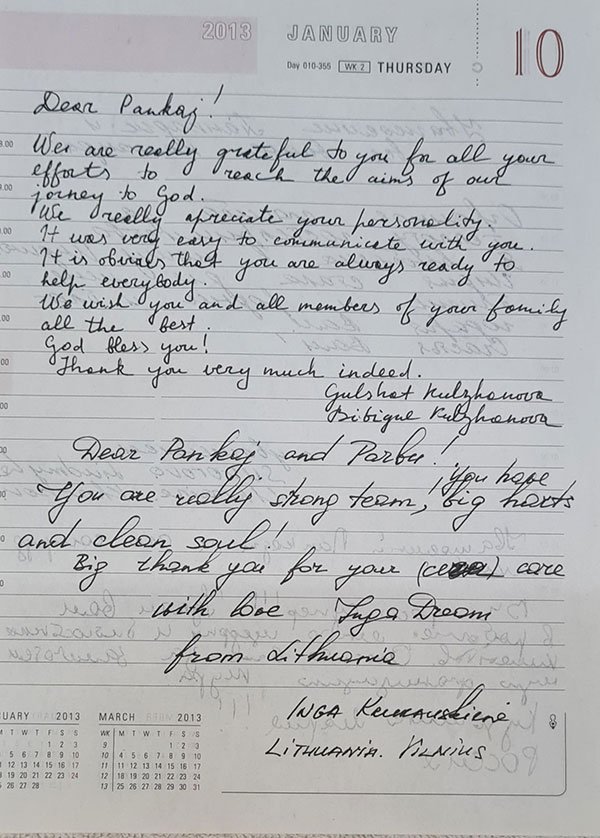 2013 JANUARY 10
Day 010-355 WK 2 THURSDAY
Dear Pankaj!
Wer are really grateful to you for all your
efforts to reach the aims of our
jorney to God.
We really apreciate your personality.
It was very easy to communicate with you.
It is obvious that you are always ready to
help everybody.
We wish you and all members of your family
all the best.
God bless you!
Thank you very much indeed.
Gulshat Kulzhanova
Bibigul Kulzhanova
Dear Pankaj and Parbu!
You are really strong team, you have big harts
and clean soul!
Big thank you for your care
with love Inga Dream
from Lithuania
INGA
LITHUANIA. VILNIUS
2013 MARCH 2013
M T W T F S S WK M T W T F S S
1 2 3 9 1 2 3
4 5 6 7 8 9 10 10 4 5 6 7 8 9 10
11 12 13 14 15 16 17 11 11 12 13 14 15 16 17
18 19 20 21 22 23 24 12 18 19 20 21 22 23 24
25 26 27 28 13 25 26 27 28 29 30 31